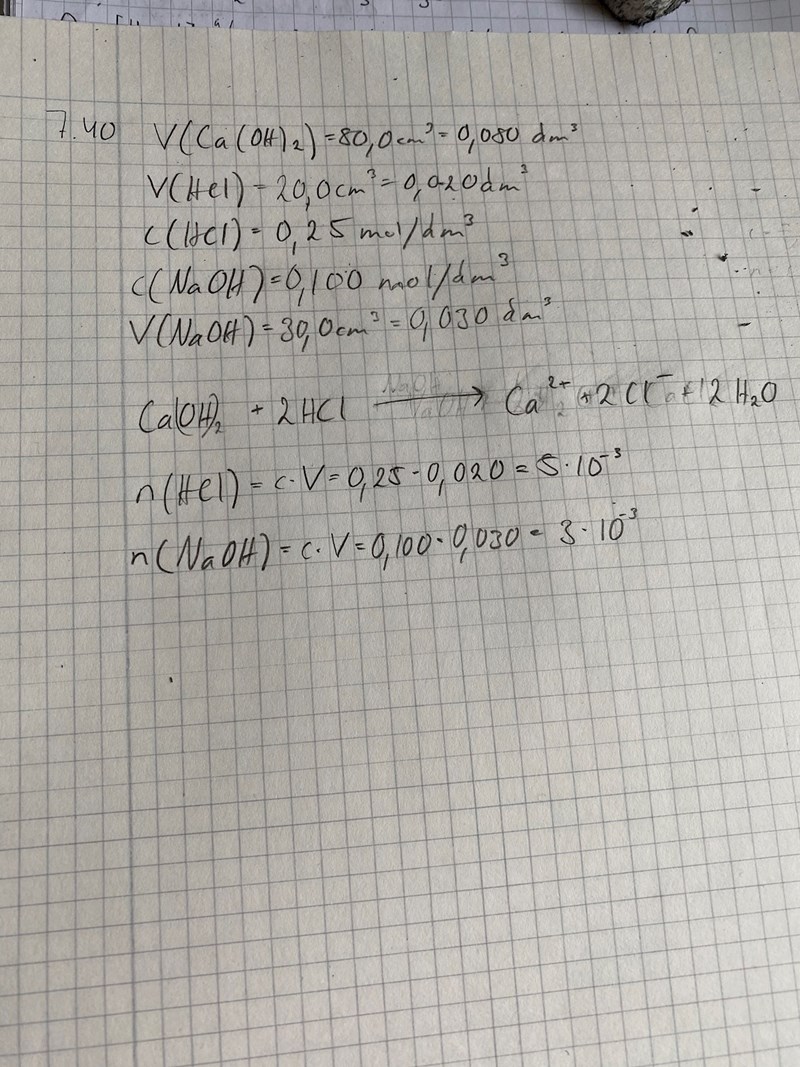 7.40 V(Ca(OH)₂) = 80,0 cm³ = 0,080 dm³
V(HCl) = 20,0 cm³ = 0,020 dm³
c(HCl) = 0,25 mol/dm³
c(NaOH) = 0,100 mol/dm³
V(NaOH) = 30,0 cm³ = 0,030 dm³
Ca(OH)₂ + 2HCl → Ca²⁺ + 2Cl⁻ + 2H₂O
n(HCl) = c·V = 0,25 · 0,020 = 5·10⁻³
n(NaOH) = c·V = 0,100 · 0,030 = 3·10⁻³